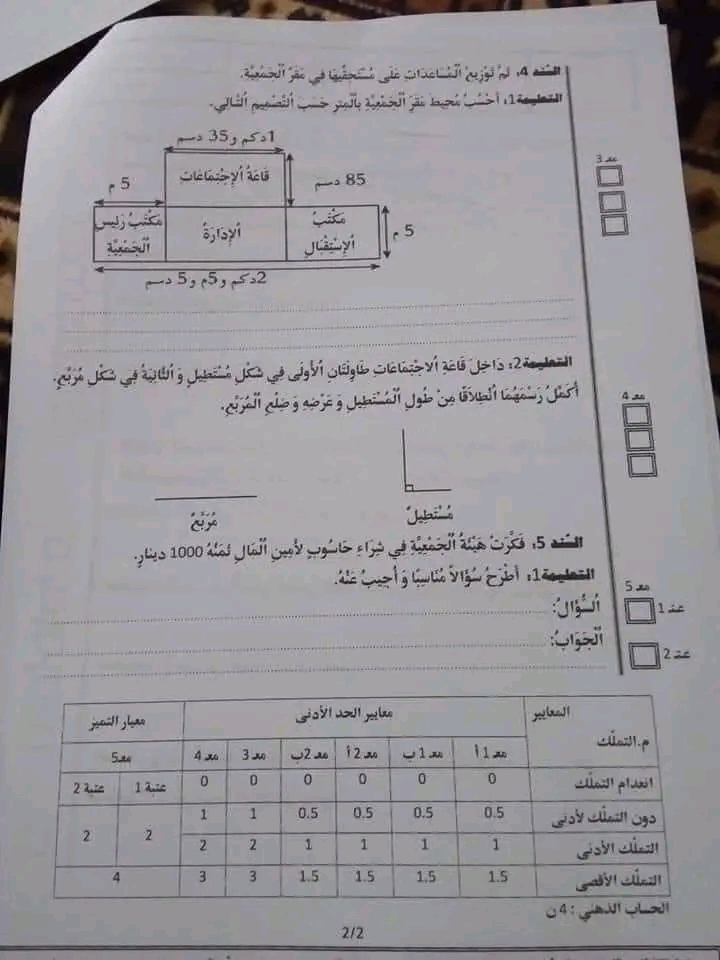 السّند 4: تَمَّ تَوْزِيعُ الْمُسَاعَدَاتِ عَلَى مُسْتَحِقِّيهَا فِي مَقَرِّ الْجَمْعِيَّةِ.
التعليمة1: أَحْسُبُ مُحِيطَ مَقَرِّ الْجَمْعِيَّةِ بِالْمِتْرِ حَسَبَ التَّصْمِيمِ التَّالِي.
مع 3
1دكم و35 دسم
قَاعَةُ الاِجْتِمَاعَاتِ
85 دسم
5 م
مَكْتَبُ رَئِيسِ الْجَمْعِيَّةِ
الإِدَارَةُ
مَكْتَبُ الإِسْتِقْبَالِ
5 م
2دكم و5م و5 دسم
التعليمة2: دَاخِلَ قَاعَةِ الاجْتِمَاعَاتِ طَاوِلَتَانِ الأُولَى فِي شَكْلِ مُسْتَطِيلٍ وَ الثَّانِيَةُ فِي شَكْلِ مُرَبَّعٍ.
أُكَمِّلُ رَسْمَهُمَا انْطِلَاقًا مِنْ طُولِ الْمُسْتَطِيلِ وَ عَرْضِهِ وَ ضِلْعِ الْمُرَبَّعِ.
مع 4
مُسْتَطِيلٌ
مُرَبَّعٌ
السّند 5: فَكَّرَتْ هَيْئَةُ الْجَمْعِيَّةِ فِي شِرَاءِ حَاسُوبٍ لِأَمِينِ الْمَالِ ثَمَنُهُ 1000 دينارٍ.
التعليمة1: أَطْرَحُ سُؤَالاً مُنَاسِبًا وَ أُجِيبُ عَنْهُ.
مع 5
السُّؤَالُ:
عتد 1
الْجَوَابُ:
عتد 2
المعايير
م.التملّك
معايير الحد الأدنى
معيار التميز
مع 1 أ مع 1 ب مع 2 أ مع 2ب مع 3 مع 4 مع5
انعدام التملّك 0 0 0 0 0 0 عتبة 1 عتبة 2
دون التملّك لأدنى 0.5 0.5 0.5 0.5 1 1 2 2
التملّك الأدنى 1 1 1 1 2 2
التملّك الأقصى 1.5 1.5 1.5 1.5 3 3 4
الحساب الذهني : 4 ن
2/2